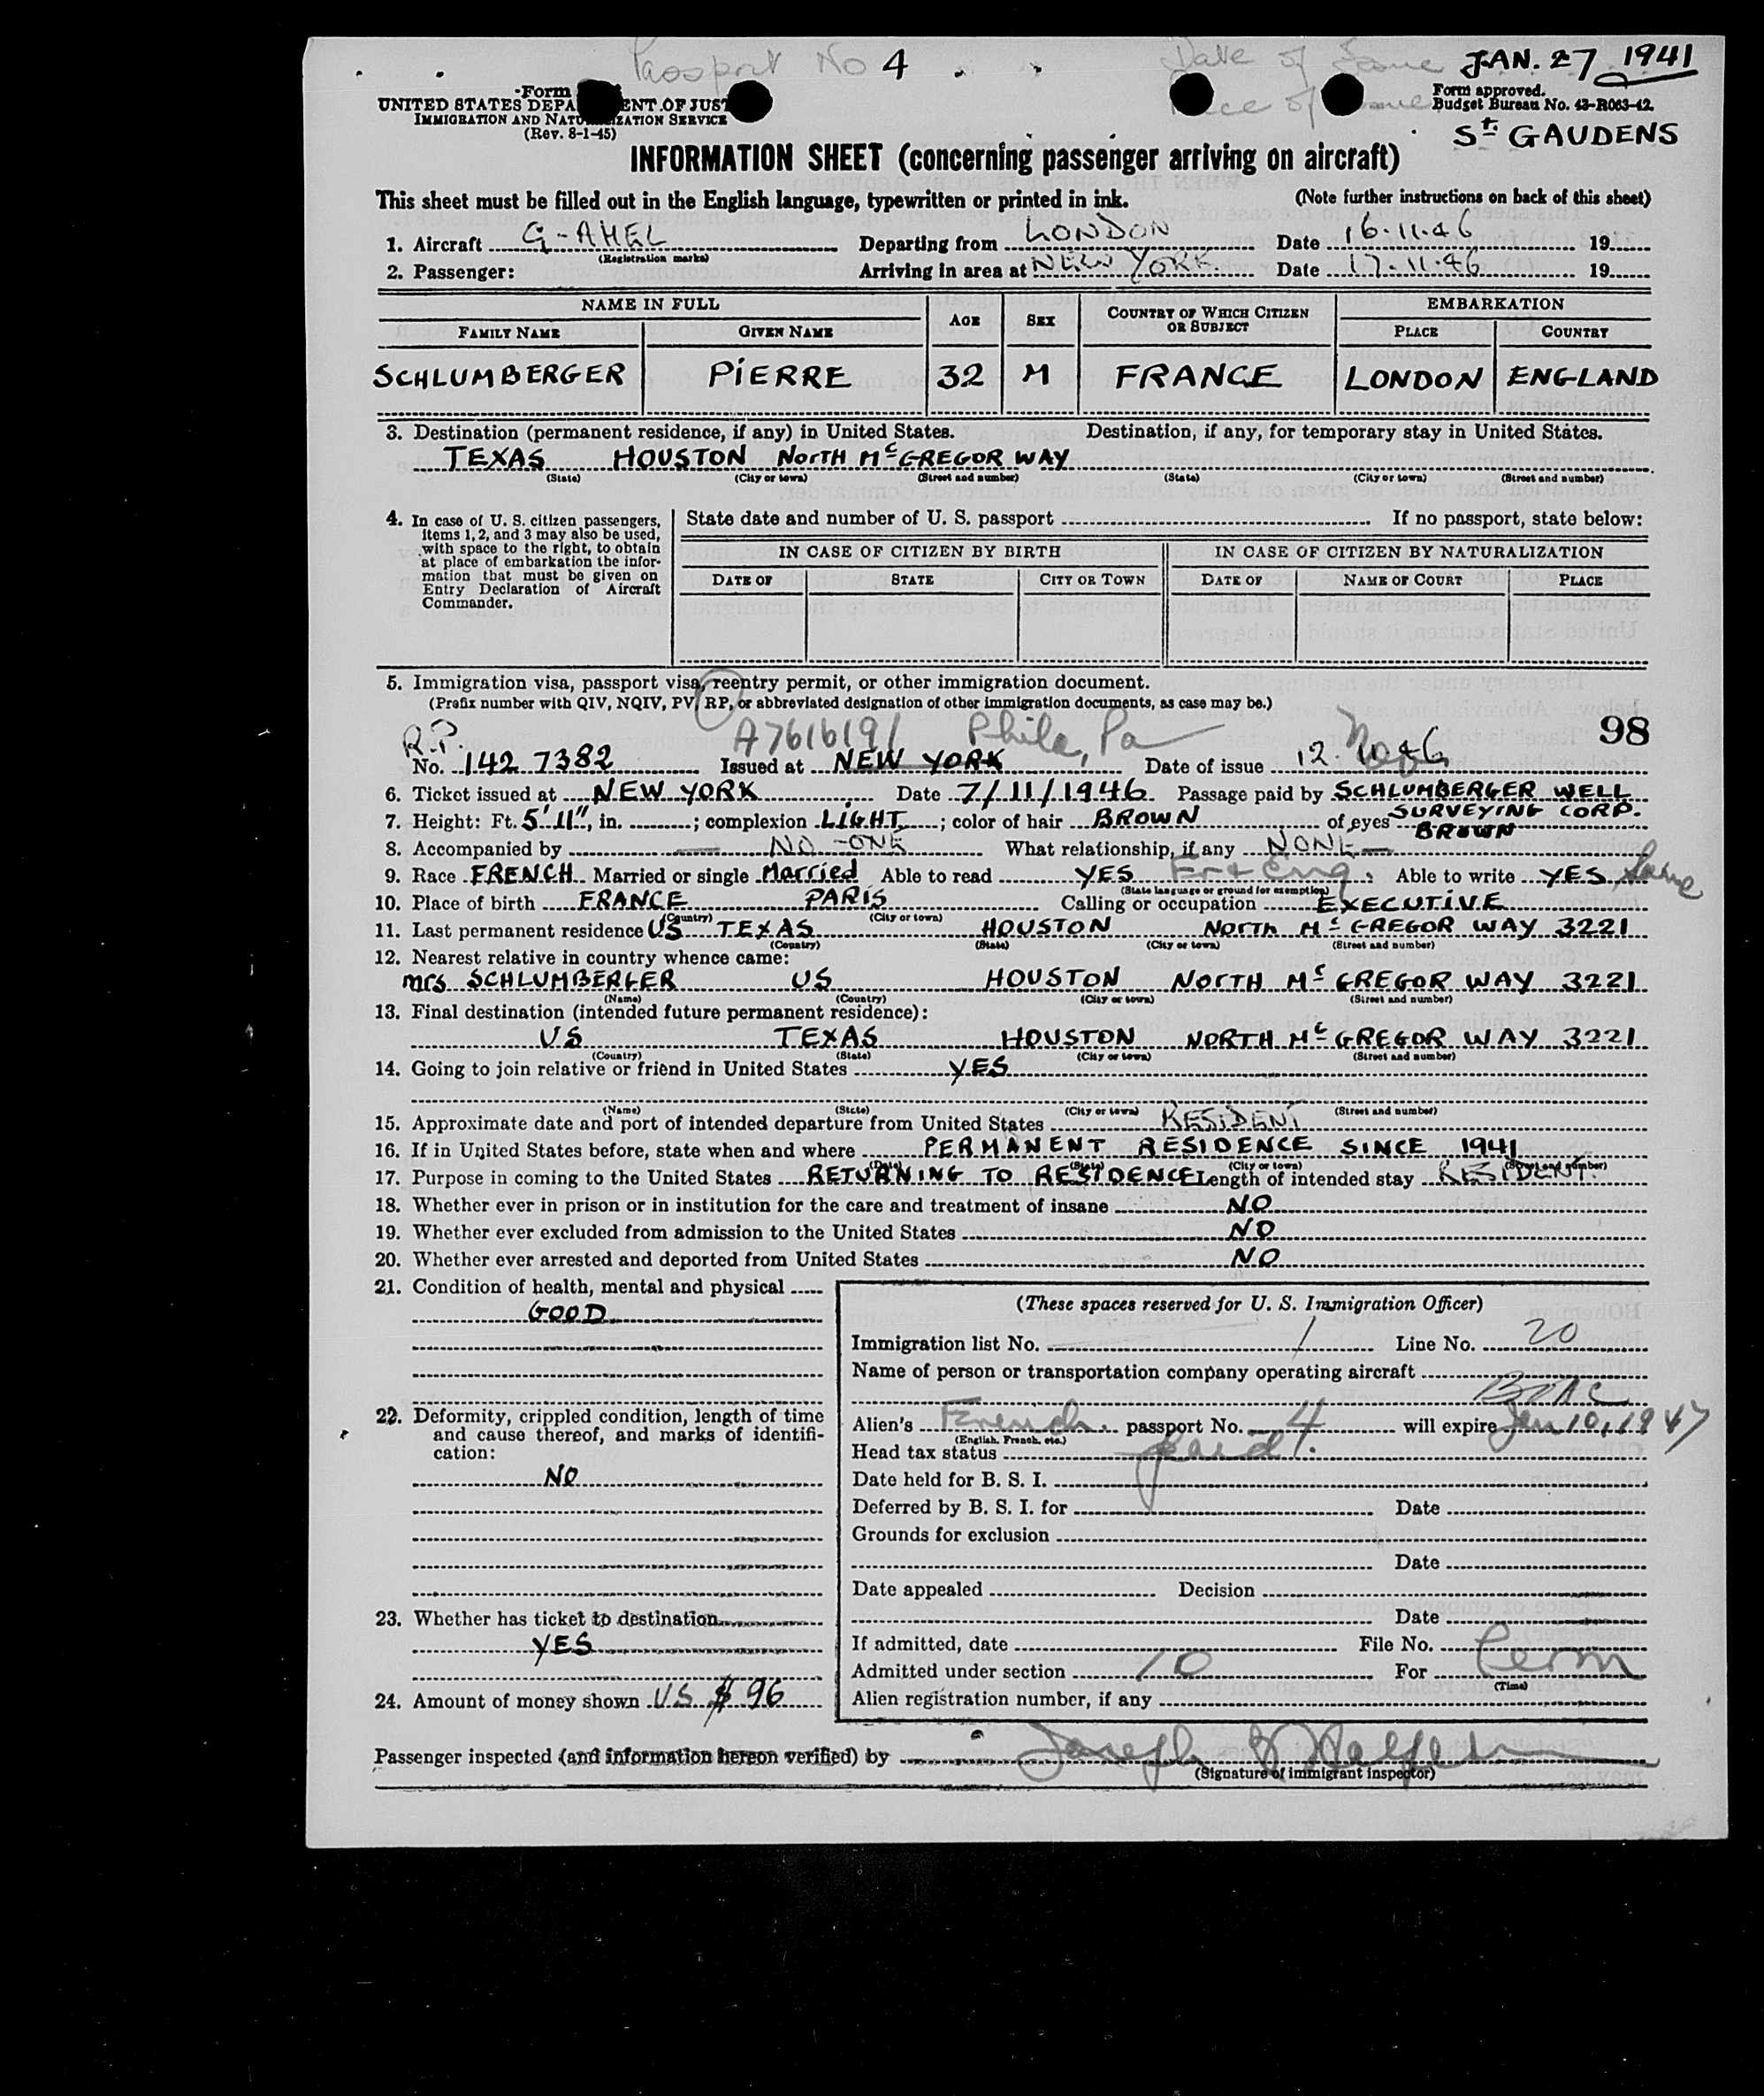 Passport No 4 Date of Issue JAN. 27 1941
Form
UNITED STATES DEPA ENT OF JUST
IMMIGRATION AND NATU IZATION SERVICE
(Rev. 8-1-45)
Place of Issue
Form approved.
Budget Bureau No. 43-R063-42.
St. GAUDENS
INFORMATION SHEET (concerning passenger arriving on aircraft)
This sheet must be filled out in the English language, typewritten or printed in ink. (Note further instructions on back of this sheet)
1. Aircraft G-AHEL Departing from LONDON Date 16.11.46 19
(Registration marks)
2. Passenger: Arriving in area at NEW YORK. Date 17.11.46 19
NAME IN FULL AGE SEX COUNTRY OF WHICH CITIZEN OR SUBJECT EMBARKATION
FAMILY NAME GIVEN NAME PLACE COUNTRY
SCHLUMBERGER PIERRE 32 M FRANCE LONDON ENGLAND
3. Destination (permanent residence, if any) in United States. Destination, if any, for temporary stay in United States.
TEXAS HOUSTON NORTH McGREGOR WAY
(State) (City or town) (Street and number) (State) (City or town) (Street and number)
4. In case of U. S. citizen passengers,
items 1, 2, and 3 may also be used,
with space to the right, to obtain
at place of embarkation the infor-
mation that must be given on
Entry Declaration of Aircraft
Commander.
State date and number of U. S. passport If no passport, state below:
IN CASE OF CITIZEN BY BIRTH IN CASE OF CITIZEN BY NATURALIZATION
DATE OF STATE CITY OR TOWN DATE OF NAME OF COURT PLACE
5. Immigration visa, passport visa, reentry permit, or other immigration document.
(Prefix number with QIV, NQIV, PV, RP, or abbreviated designation of other immigration documents, as case may be.)
R.P. A7616191 Phila, Pa 98
No. 142 7382 Issued at NEW YORK Date of issue 12.
6. Ticket issued at NEW YORK Date 7/11/1946 Passage paid by SCHLUMBERGER WELL
SURVEYING CORP.
7. Height: Ft. 5' 11", in. ; complexion LIGHT ; color of hair BROWN of eyes BROWN
8. Accompanied by NO-ONE What relationship, if any NONE
9. Race FRENCH Married or single Married Able to read YES Fr & Eng ; Able to write YES, Same
(State language or ground for exemption)
10. Place of birth FRANCE PARIS Calling or occupation EXECUTIVE
(Country) (City or town)
11. Last permanent residence US TEXAS HOUSTON NORTH McGREGOR WAY 3221
(Country) (State) (City or town) (Street and number)
12. Nearest relative in country whence came:
Mrs SCHLUMBERGER US HOUSTON NORTH McGREGOR WAY 3221
(Name) (Country) (City or town) (Street and number)
13. Final destination (intended future permanent residence):
US TEXAS HOUSTON NORTH McGREGOR WAY 3221
(Country) (State) (City or town) (Street and number)
14. Going to join relative or friend in United States YES
(Name) (State) (City or town) (Street and number)
15. Approximate date and port of intended departure from United States RESIDENT
16. If in United States before, state when and where PERMANENT RESIDENCE SINCE 1941
(Date) (State) (City or town) (Street and number)
17. Purpose in coming to the United States RETURNING TO RESIDENCE Length of intended stay RESIDENT.
18. Whether ever in prison or in institution for the care and treatment of insane NO
19. Whether ever excluded from admission to the United States NO
20. Whether ever arrested and deported from United States NO
21. Condition of health, mental and physical
GOOD
22. Deformity, crippled condition, length of time
and cause thereof, and marks of identifi-
cation:
NO
23. Whether has ticket to destination
YES
24. Amount of money shown US $ 96
(These spaces reserved for U. S. Immigration Officer)
Immigration list No. 1 Line No. 20
Name of person or transportation company operating aircraft
BOAC
Alien's French passport No. 4 will expire Jan 10, 1947
(English, French, etc.)
Head tax status paid.
Date held for B. S. I.
Deferred by B. S. I. for Date
Grounds for exclusion
Date
Date appealed Decision
Date
If admitted, date File No.
Admitted under section 10 For Perm
(Time)
Alien registration number, if any
Passenger inspected (and information hereon verified) by Joseph
(Signature of immigrant inspector)